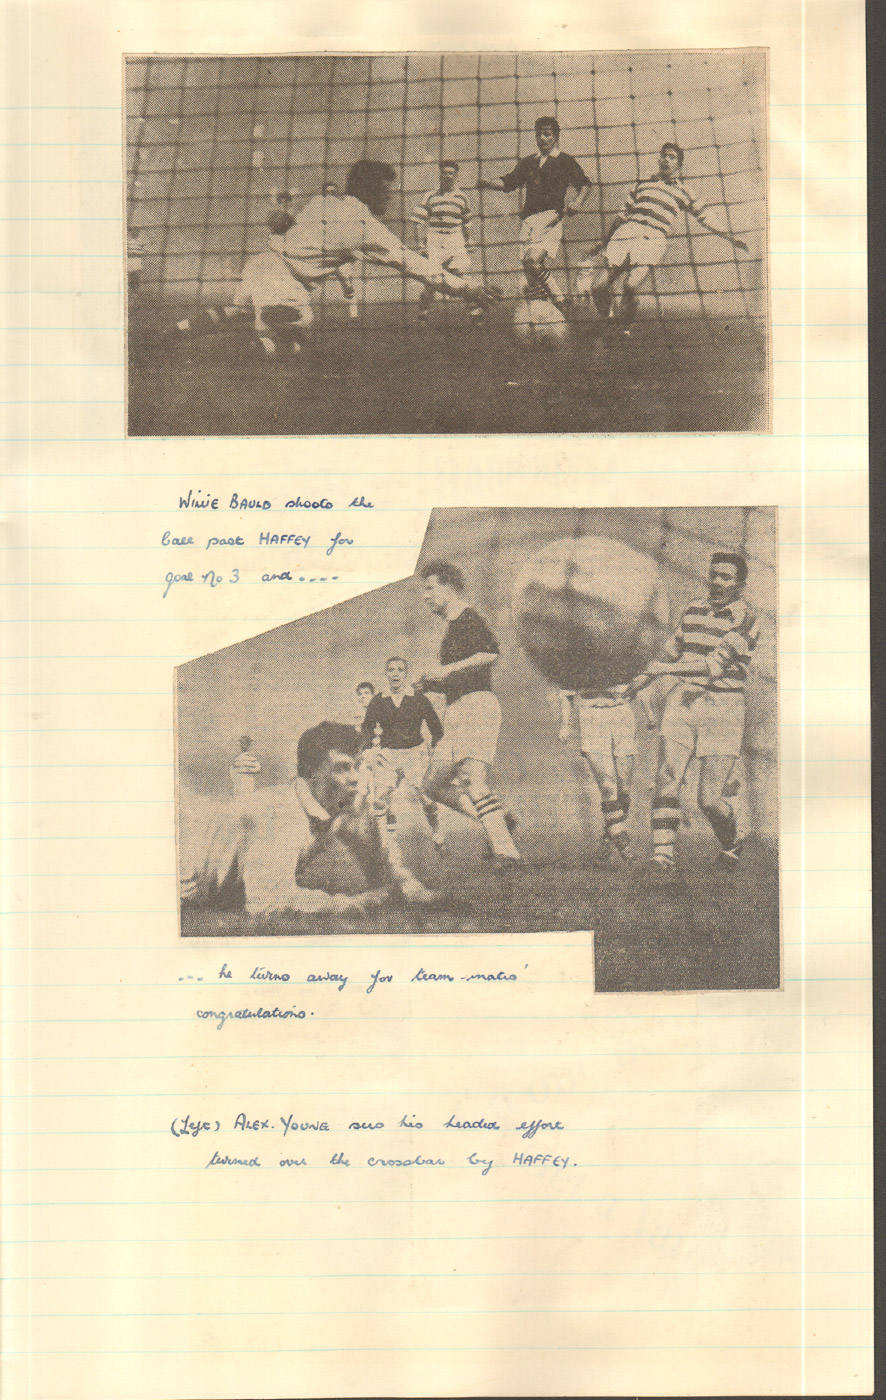 WILLIE BAULD shoots the
ball past HAFFEY for
goal No 3 and ----
--- he turns away for team-mates'
congratulations.
(Left) ALEX. YOUNG sees his headed effort
turned over the crossbar by HAFFEY.